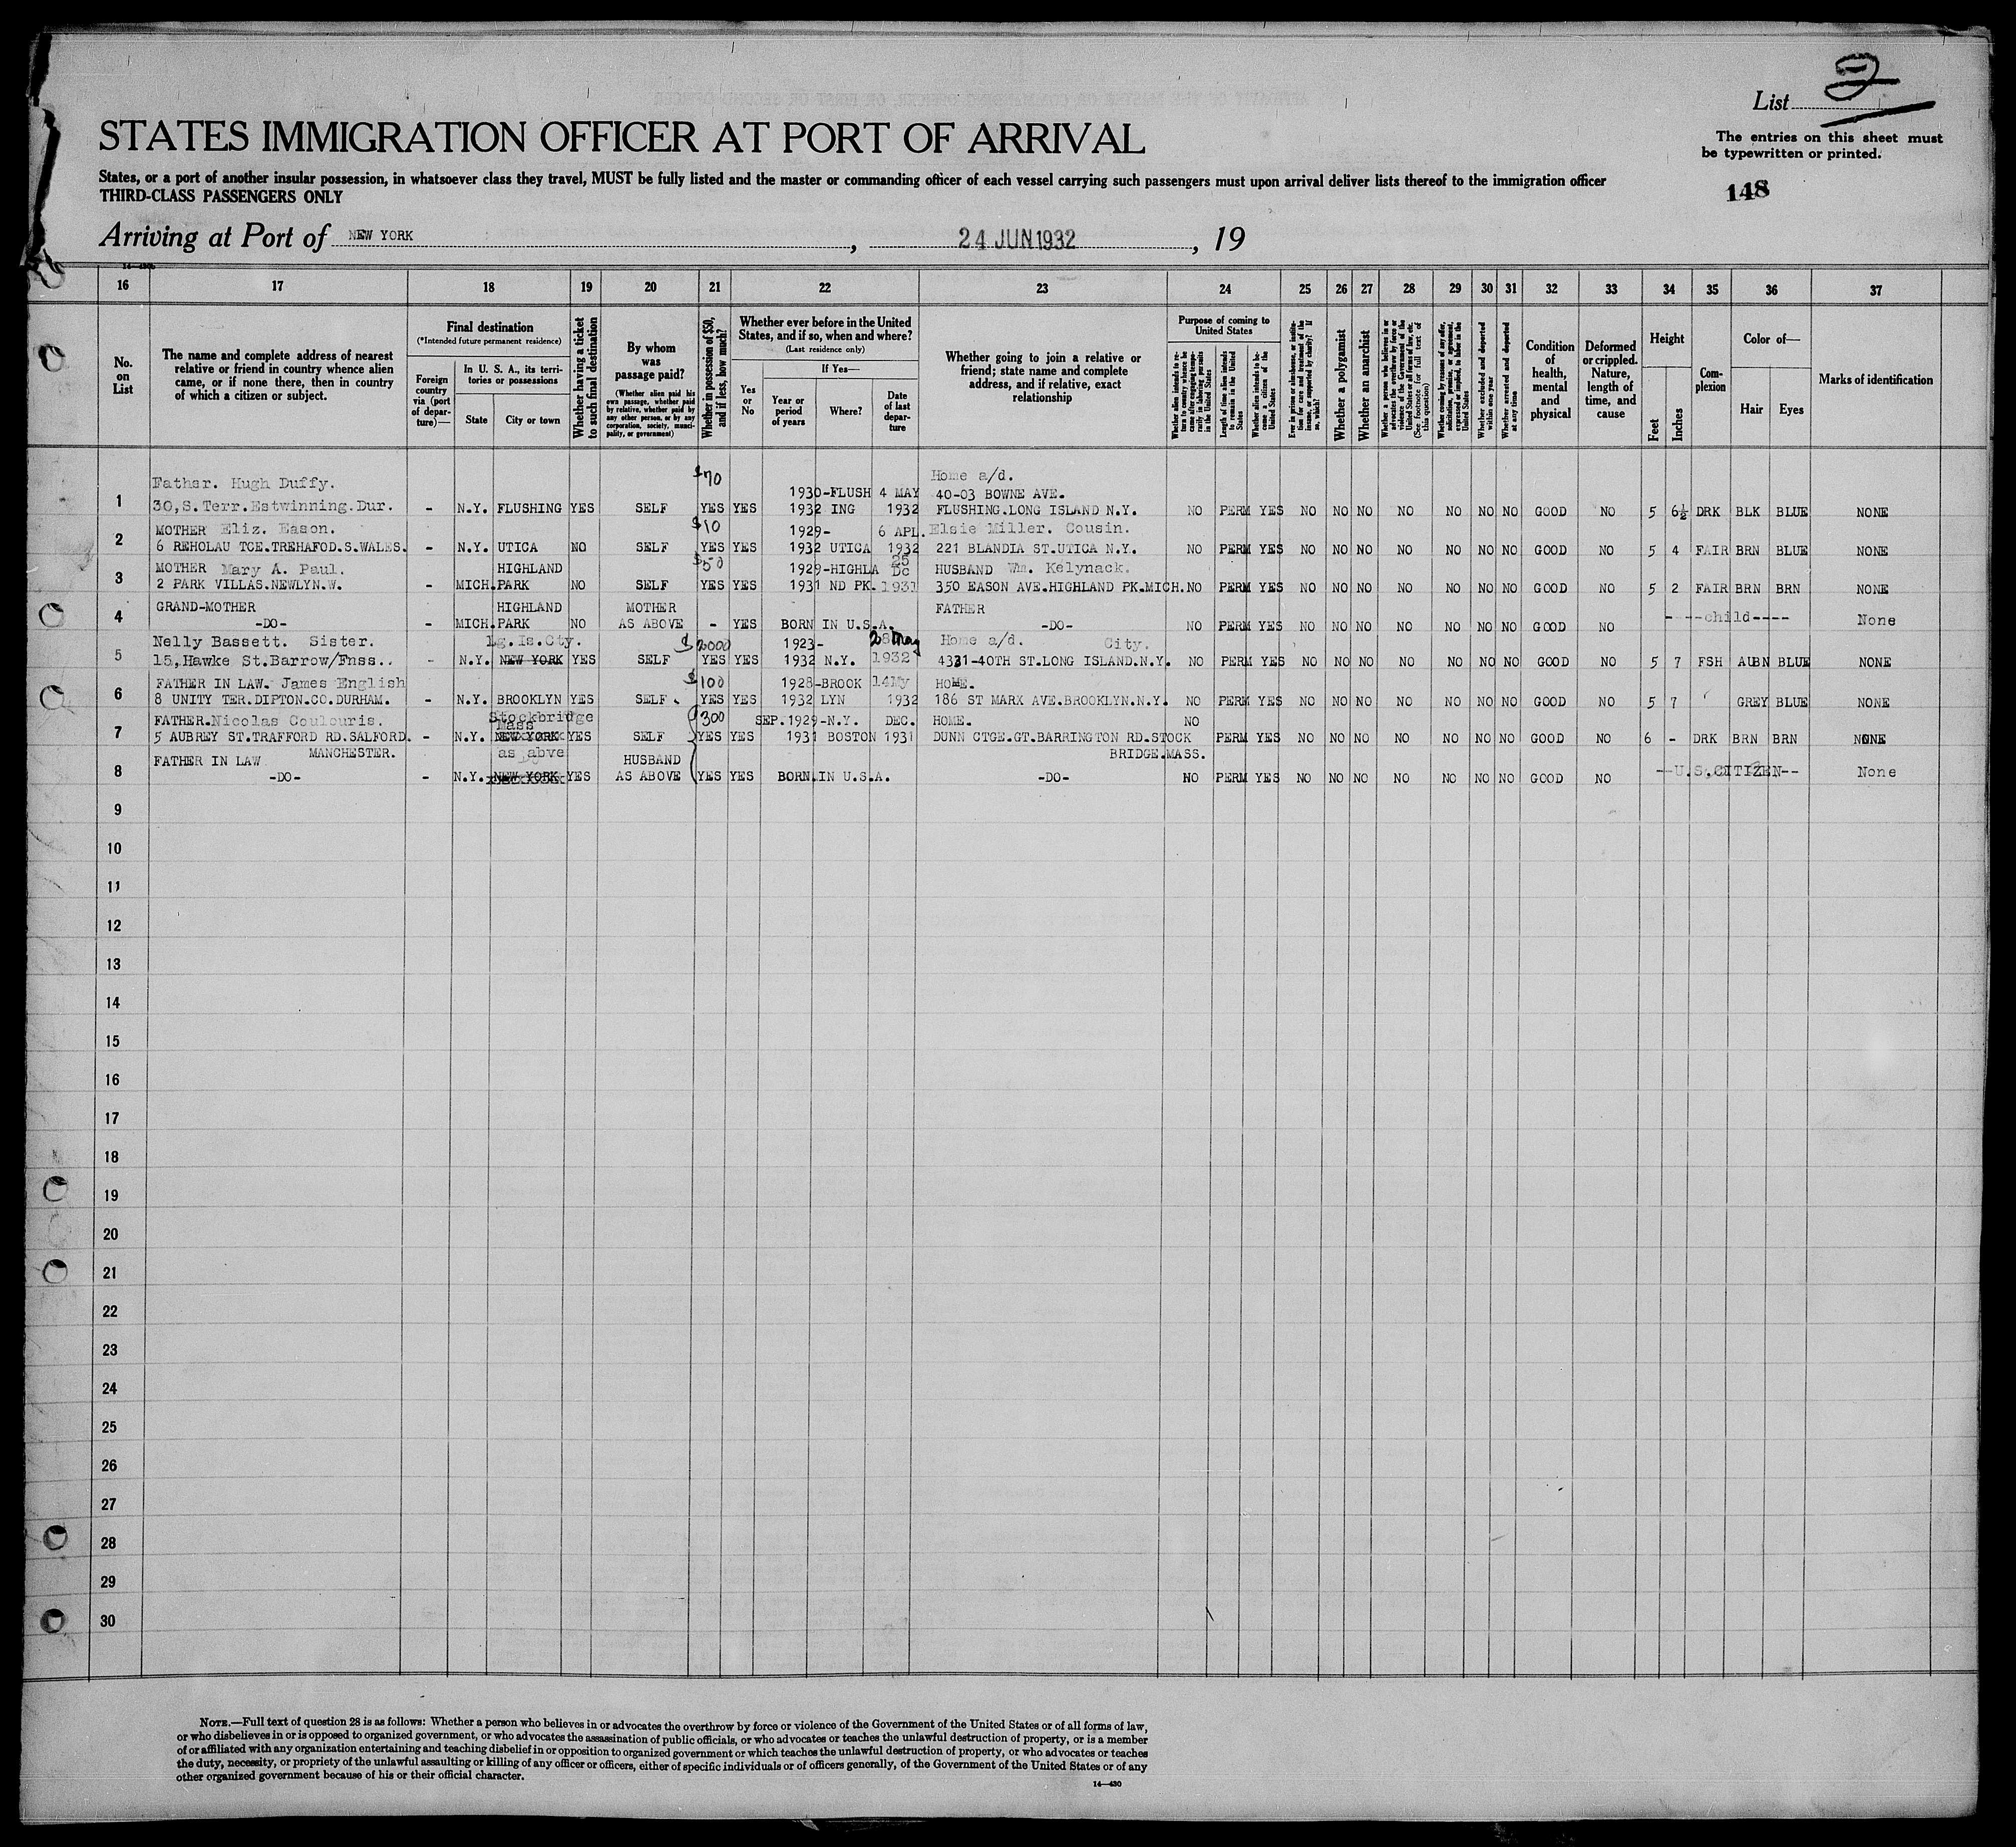 List 2
The entries on this sheet must
be typewritten or printed.
148
STATES IMMIGRATION OFFICER AT PORT OF ARRIVAL
States, or a port of another insular possession, in whatsoever class they travel, MUST be fully listed and the master or commanding officer of each vessel carrying such passengers must upon arrival deliver lists thereof to the immigration officer
THIRD-CLASS PASSENGERS ONLY
Arriving at Port of NEW YORK, 24 JUN 1932, 19
16 17 18 19 20 21 22 23 24 25 26 27 28 29 30 31 32 33 34 35 36 37
No.
on
List
The name and complete address of nearest
relative or friend in country whence alien
came, or if none there, then in country
of which a citizen or subject.
Final destination
(*Intended future permanent residence)
Foreign
country
via (port
of depar-
ture)—
In U. S. A., its terri-
tories or possessions
State
City or town
Whether having a ticket
to such final destination
By whom
was
passage paid?
(Whether alien paid his
own passage, whether paid
by relative, whether paid by
any other person, or by any
corporation, society, munici-
pality, or government)
Whether in possession of $50,
and if less, how much?
Whether ever before in the United
States, and if so, when and where?
(Last residence only)
Yes
or
No
If Yes—
Year or
period
of years
Where?
Date
of last
depar-
ture
Whether going to join a relative or
friend; state name and complete
address, and if relative, exact
relationship
Purpose of coming to
United States
Whether alien intends to re-
turn to country whence he
came after engaging tempo-
rarily in laboring pursuits
in the United States
Length of time alien intends
to remain in the United
States
Whether alien intends to be-
come a citizen of the
United States
Ever in prison or almshouse, or institu-
tion for care and treatment of the
insane, or supported by charity? If
so, which?
Whether a polygamist
Whether an anarchist
Whether a person who believes in or
advocates the overthrow by force or
violence of the Government of the
United States or all forms of law, etc.
(See footnote for full text of
this question)
Whether coming by reason of any offer,
solicitation, promise, or agreement,
expressed or implied, to labor in the
United States
Whether excluded and deported
within one year
Whether arrested and deported
at any time
Condition
of
health,
mental
and
physical
Deformed
or crippled.
Nature,
length of
time, and
cause
Height
Feet
Inches
Com-
plexion
Color of—
Hair
Eyes
Marks of identification
Father. Hugh Duffy. $70 1930-FLUSH 4 MAY Home a/d. 40-03 BOWNE AVE.
1 30,S.Terr.Estwinning.Dur. - N.Y. FLUSHING YES SELF YES YES 1932 ING 1932 FLUSHING.LONG ISLAND N.Y. NO PERM YES NO NO NO NO NO NO NO GOOD NO 5 6½ DRK BLK BLUE NONE
MOTHER Eliz. Eason. $10 1929- 6 APL. Elsie Miller. Cousin.
2 6 REHOLAU TCE.TREHAFOD.S.WALES. - N.Y. UTICA NO SELF YES YES 1932 UTICA 1932 221 BLANDIA ST.UTICA N.Y. NO PERM YES NO NO NO NO NO NO NO GOOD NO 5 4 FAIR BRN BLUE NONE
MOTHER Mary A. Paul. HIGHLAND $50 1929-HIGHLA 25 Dc HUSBAND Wm. Kelynack.
3 2 PARK VILLAS.NEWLYN.W. - MICH. PARK NO SELF YES YES 1931 ND PK. 1931 350 EASON AVE.HIGHLAND PK.MICH. NO PERM YES NO NO NO NO NO NO NO GOOD NO 5 2 FAIR BRN BRN NONE
GRAND-MOTHER HIGHLAND MOTHER FATHER
4 -DO- MICH. PARK NO AS ABOVE - YES BORN IN U.S.A. -DO- NO PERM YES NO NO NO NO NO NO NO GOOD NO ----child---- None
Nelly Bassett. Sister. Lg.Is.City. $2000 1923- 28 May Home a/d. City.
5 15,Hawke St.Barrow/Fnss.. - N.Y. NEW YORK YES SELF YES YES 1932 N.Y. 1932 4331-40TH ST.LONG ISLAND.N.Y. NO PERM YES NO NO NO NO NO NO NO GOOD NO 5 7 FSH AUBN BLUE NONE
FATHER IN LAW. James English $100 1928-BROOK 14My HOME.
6 8 UNITY TER.DIPTON.CO.DURHAM. - N.Y. BROOKLYN YES SELF YES YES 1932 LYN 1932 186 ST MARX AVE.BROOKLYN.N.Y. NO PERM YES NO NO NO NO NO NO NO GOOD NO 5 7 GREY BLUE NONE
FATHER.Nicolas Coulouris. Stockbridge Mass $300 SEP.1929-N.Y. DEC. HOME. NO
7 5 AUBREY ST.TRAFFORD RD.SALFORD. - N.Y. NEW YORK YES SELF YES YES 1931 BOSTON 1931 DUNN CTGE.GT.BARRINGTON RD.STOCK PERM YES NO NO NO NO NO NO NO GOOD NO 6 - DRK BRN BRN NONE
FATHER IN LAW MANCHESTER. as abve HUSBAND BRIDGE.MASS.
8 -DO- - N.Y. NEW YORK YES AS ABOVE YES YES BORN.IN U.S.A. -DO- NO PERM YES NO NO NO NO NO NO NO GOOD NO --U.S.CITIZEN-- None
9
10
11
12
13
14
15
16
17
18
19
20
21
22
23
24
25
26
27
28
29
30
NOTE.—Full text of question 28 is as follows: Whether a person who believes in or advocates the overthrow by force or violence of the Government of the United States or of all forms of law,
or who disbelieves in or is opposed to organized government, or who advocates the assassination of public officials, or who advocates or teaches the unlawful destruction of property, or is a member
of or affiliated with any organization entertaining and teaching disbelief in or opposition to organized government or which teaches the unlawful destruction of property, or who advocates or teaches
the duty, necessity, or propriety of the unlawful assaulting or killing of any officer or officers, either of specific individuals or of officers generally, of the Government of the United States or of any
other organized government because of his or their official character.
14—430